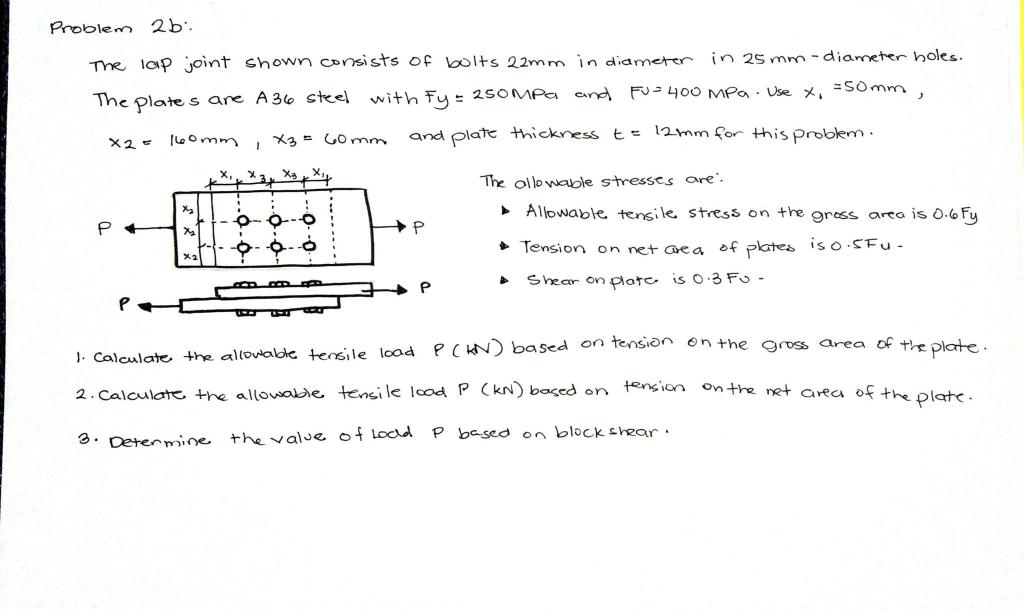 Problem 2b:
The lap joint shown consists of bolts 22mm in diameter in 25 mm-diameter holes.
The plates are A36 steel with Fy = 250MPa and FU = 400 MPa. Use x1 = 50mm,
x2 = 160mm, x3 = 60mm and plate thickness t = 12mm for this problem.
x1 x3 x3 x1
The allowable stresses are:
x2
▶ Allowable tensile stress on the gross area is 0.6Fy
P x2 P
▶ Tension on net area of plates is 0.5Fu -
x2
▶ Shear on plate is 0.3 Fu -
P
P
1. Calculate the allowable tensile load P (kN) based on tension on the gross area of the plate.
2. Calculate the allowable tensile load P (kN) based on tension on the net area of the plate.
3. Determine the value of Load P based on block shear.